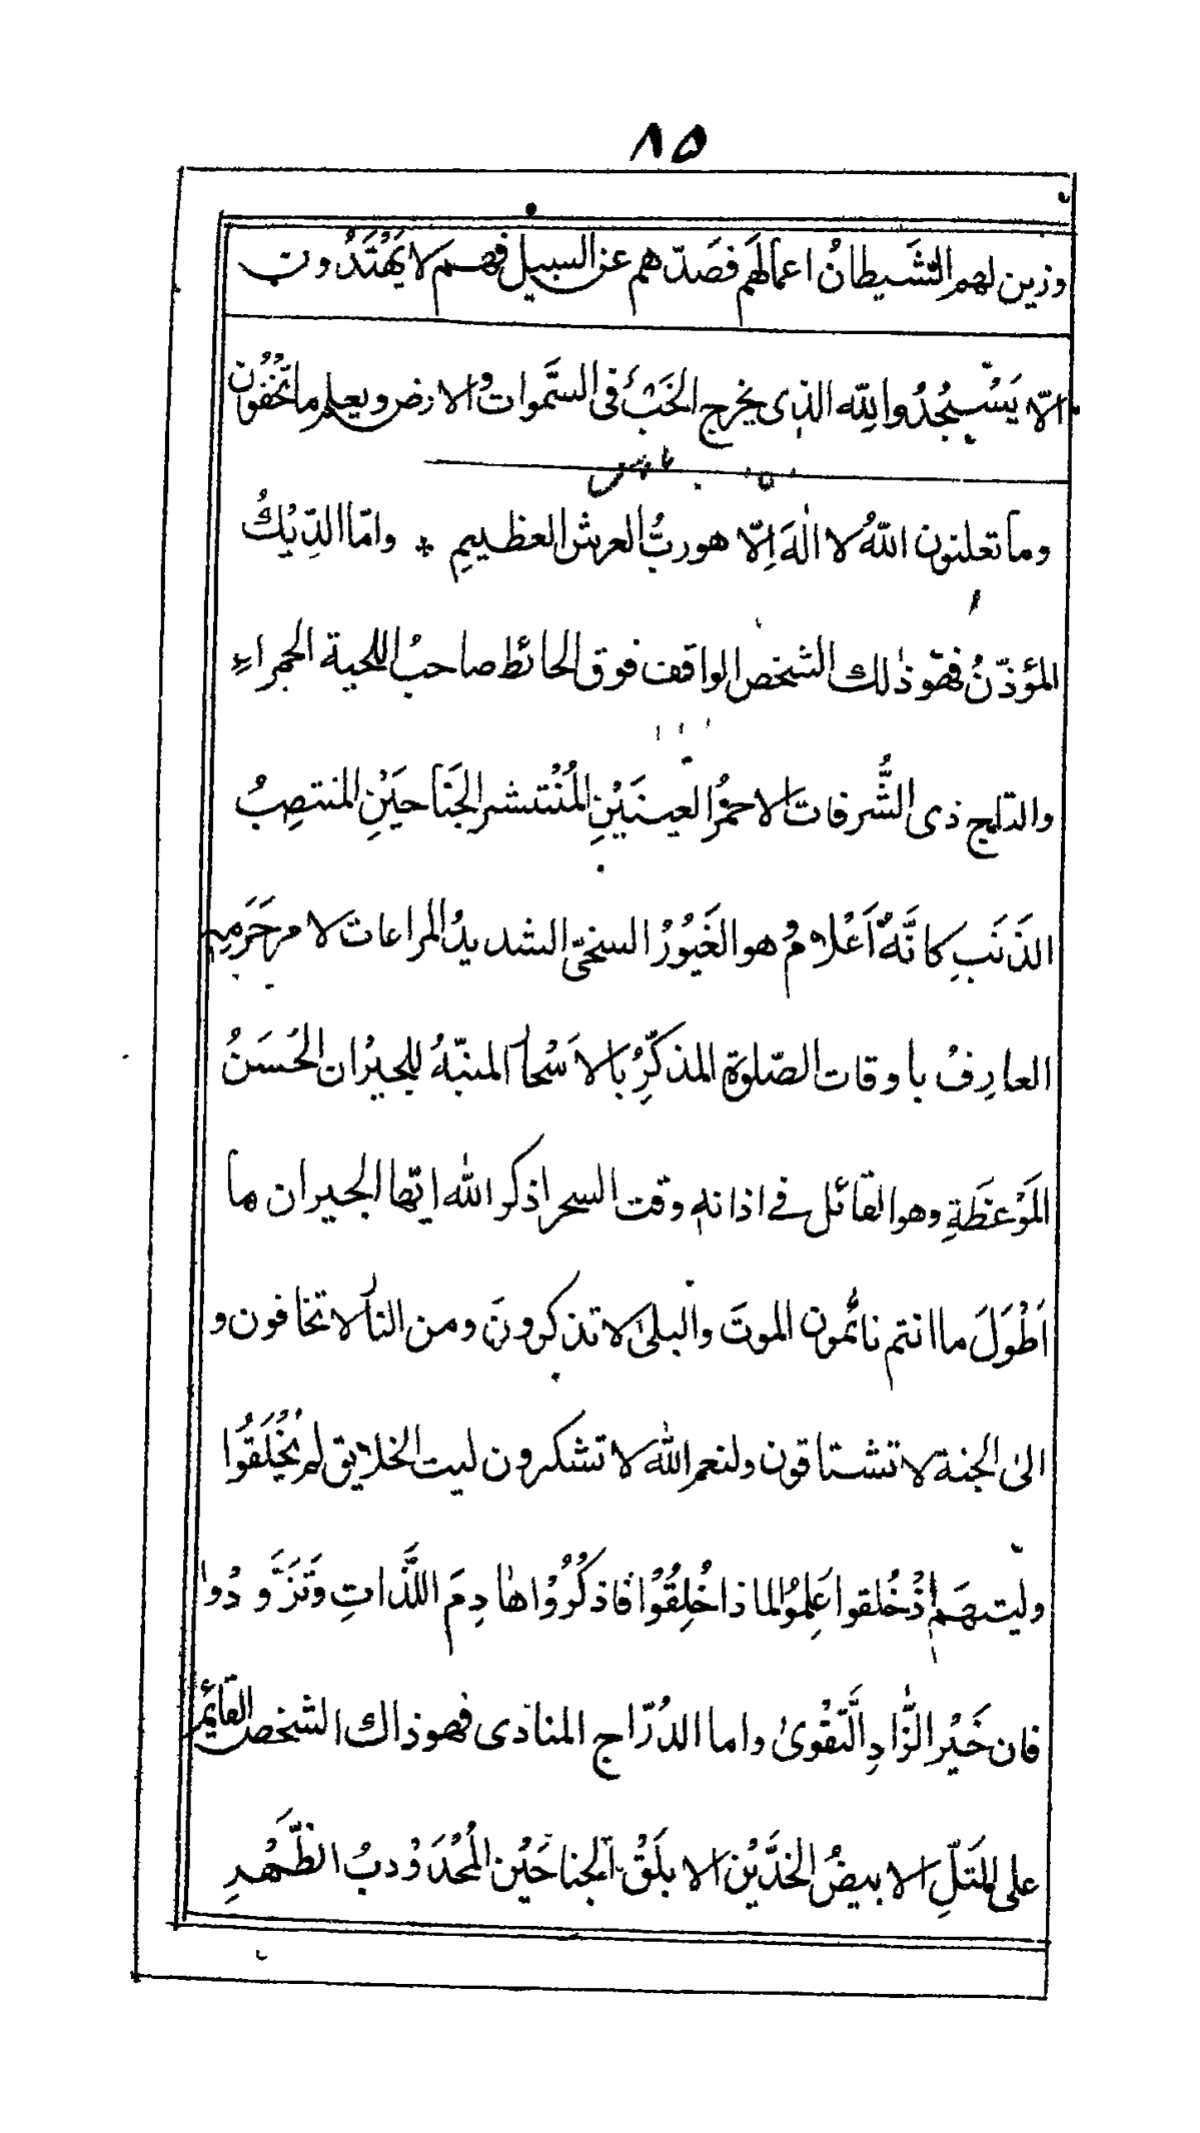 ٨٥
وزين لهم الشَّيطانُ اعمالَهم فصَدّهم عن السبيل فهم لا يَهْتَدُون
الّا يَسْجُدُوا لِلّه الذى يخرج الخَبْءَ فى السَّموات والارض ويعلم ما تُخْفُون
وما تعلنون اللّهُ لا الٰهَ اِلّا هو ربُّ العرش العظيمِ * وامّا الدِّيْكُ
المؤذّنُ فهو ذٰلك الشخص الواقف فوق الحائط صاحبُ اللحية الحمراءِ
والتاج ذى الشُّرفات الاحمرُ العينَيْنِ المُنْتشر الجَنَاحَيْنِ المنتصِبُ
الذَنَبِ كانَّهُ اَعْلامٌ هو الغَيُوْرُ السخىّ الشديدُ المراعات لامر حَرَمِه
العارِفُ باوقات الصّلوة المذكِّرُ بالاَسْحار المنبّهُ للجيْران الحُسَنُ
المَوْعظَةِ وهو القائل فى اذانه وقت السحر اذكروا اللّه ايّها الجيران ما
اَطْوَلَ ما انتم نائمُون الموتَ والبلىٰ لا تذكرونَ ومن النار لا تخافون و
الىٰ الجنة لا تشتاقون ولنعم اللّه لا تشكرون ليت الخلايق لم يُخْلَقُوا
وليتهم اِذْخُلقوا عَلِمُوا لماذا خُلِقُوْا فاذكُرُوْا هادِمَ اللَّذاتِ وتَزَوَّدُوا
فان خَيْرَ الزَّادِ التَّقْوىٰ واما الدُرّاج المنادى فهو ذاك الشخص القائم
على التَلِّ الابيضُ الخدَّيْن الابلَقُ الجناحَيْن المُحْدَوْدبُ الظَّهْرِ